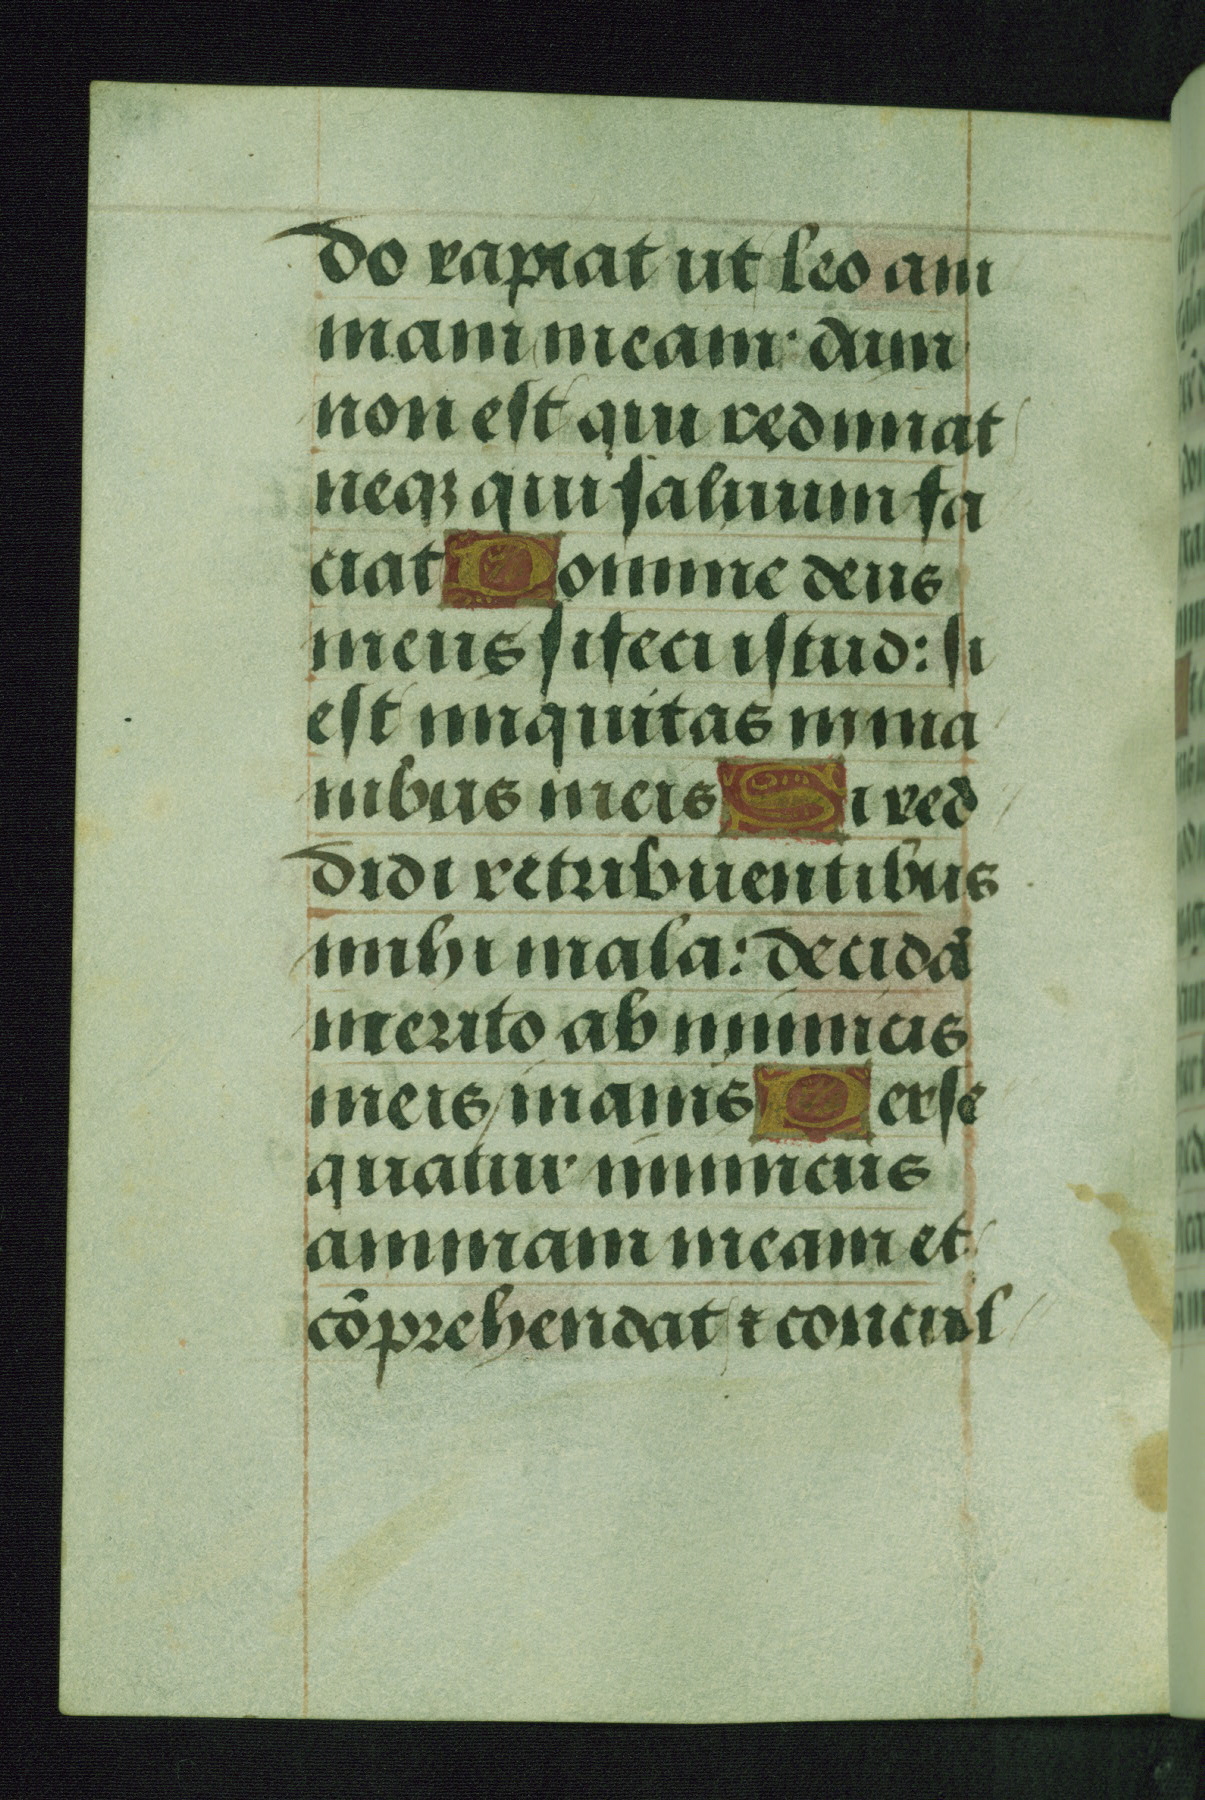 do rapiat ut leo ani
mam meam· dum
non est qui redimat
neqꝫ qui saluum fa
ciat Domine deus
meus si feci istud: si
est iniquitas in ma
nibus meis Si red
didi retribuentibus
mihi mala: decidā
merito ab inimicis
meis inanis Perse
quatur inimicus
animam meam et
cōprehendat ⁊ concul